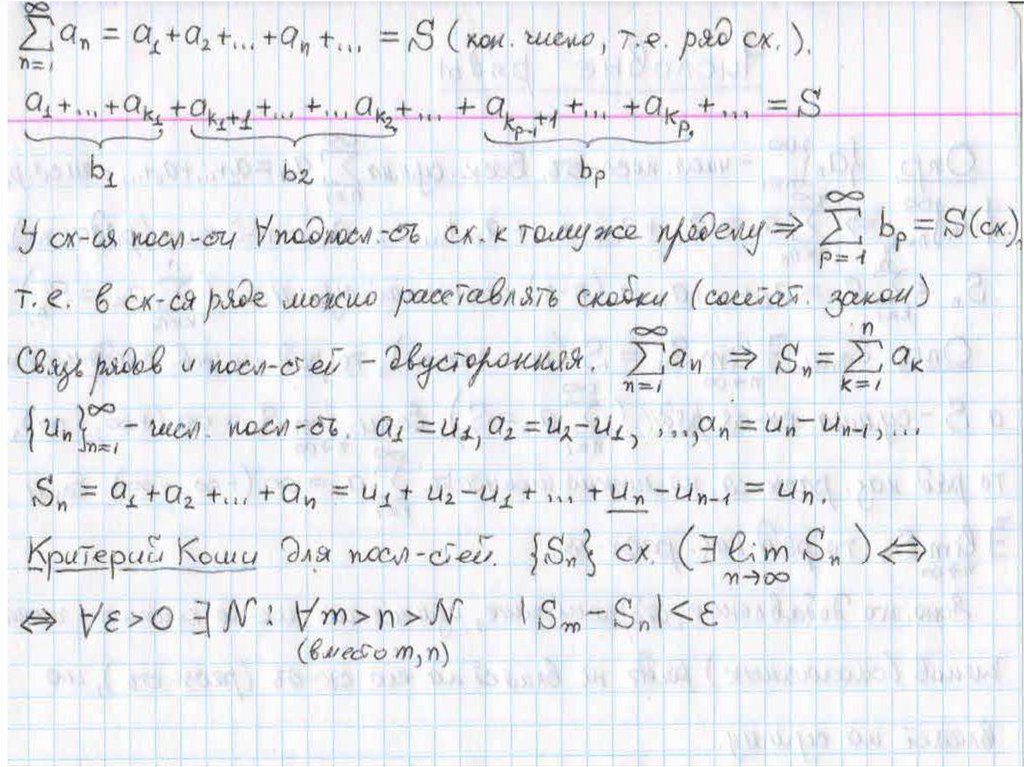 ∞∑n=1 aₙ = a₁ + a₂ + ... + aₙ + ... = S (кон. число, т.е. ряд сх.).
a₁ + ... + a_{k₁} + a_{k₁+1} + ... + ... a_{k₂} + ... + a_{k_{p-1}+1} + ... + a_{k_p} + ... = S
b₁ b₂ b_p
У сх-ся посл-сти ∀ подпосл.-сть сх. к тому же пределу ⇒ ∞∑p=1 b_p = S (сх.),
т.е. в сх-ся ряде можно расставлять скобки (сочетат. закон)
Связь рядов и посл-стей - двусторонняя. ∞∑n=1 aₙ ⇒ Sₙ = n∑k=1 a_k
{uₙ}∞n=1 - числ. посл-сть, a₁ = u₁, a₂ = u₂ - u₁, ..., aₙ = uₙ - uₙ₋₁, ...
Sₙ = a₁ + a₂ + ... + aₙ = u₁ + u₂ - u₁ + ... + uₙ - uₙ₋₁ = uₙ.
Критерий Коши для посл-стей. {Sₙ} сх. (∃ lim n→∞ Sₙ) ⇔
⇔ ∀ε > 0 ∃ N : ∀m > n > N |Sₘ - Sₙ| < ε
(вместо m, n)